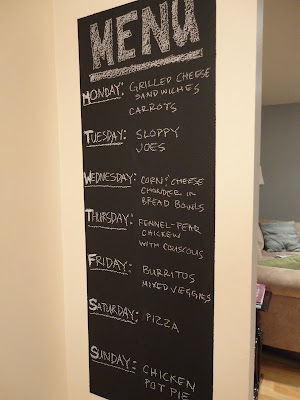 MENU
MONDAY: GRILLED CHEESE
SANDWICHES
CARROTS
TUESDAY: SLOPPY
JOES
WEDNESDAY: CORN & CHEESE
CHOWDER IN
BREAD BOWLS
THURSDAY: FENNEL-PEAR
CHICKEN
WITH COUSCOUS
FRIDAY: BURRITOS
MIXED VEGGIES
SATURDAY: PIZZA
SUNDAY: CHICKEN
POT PIE